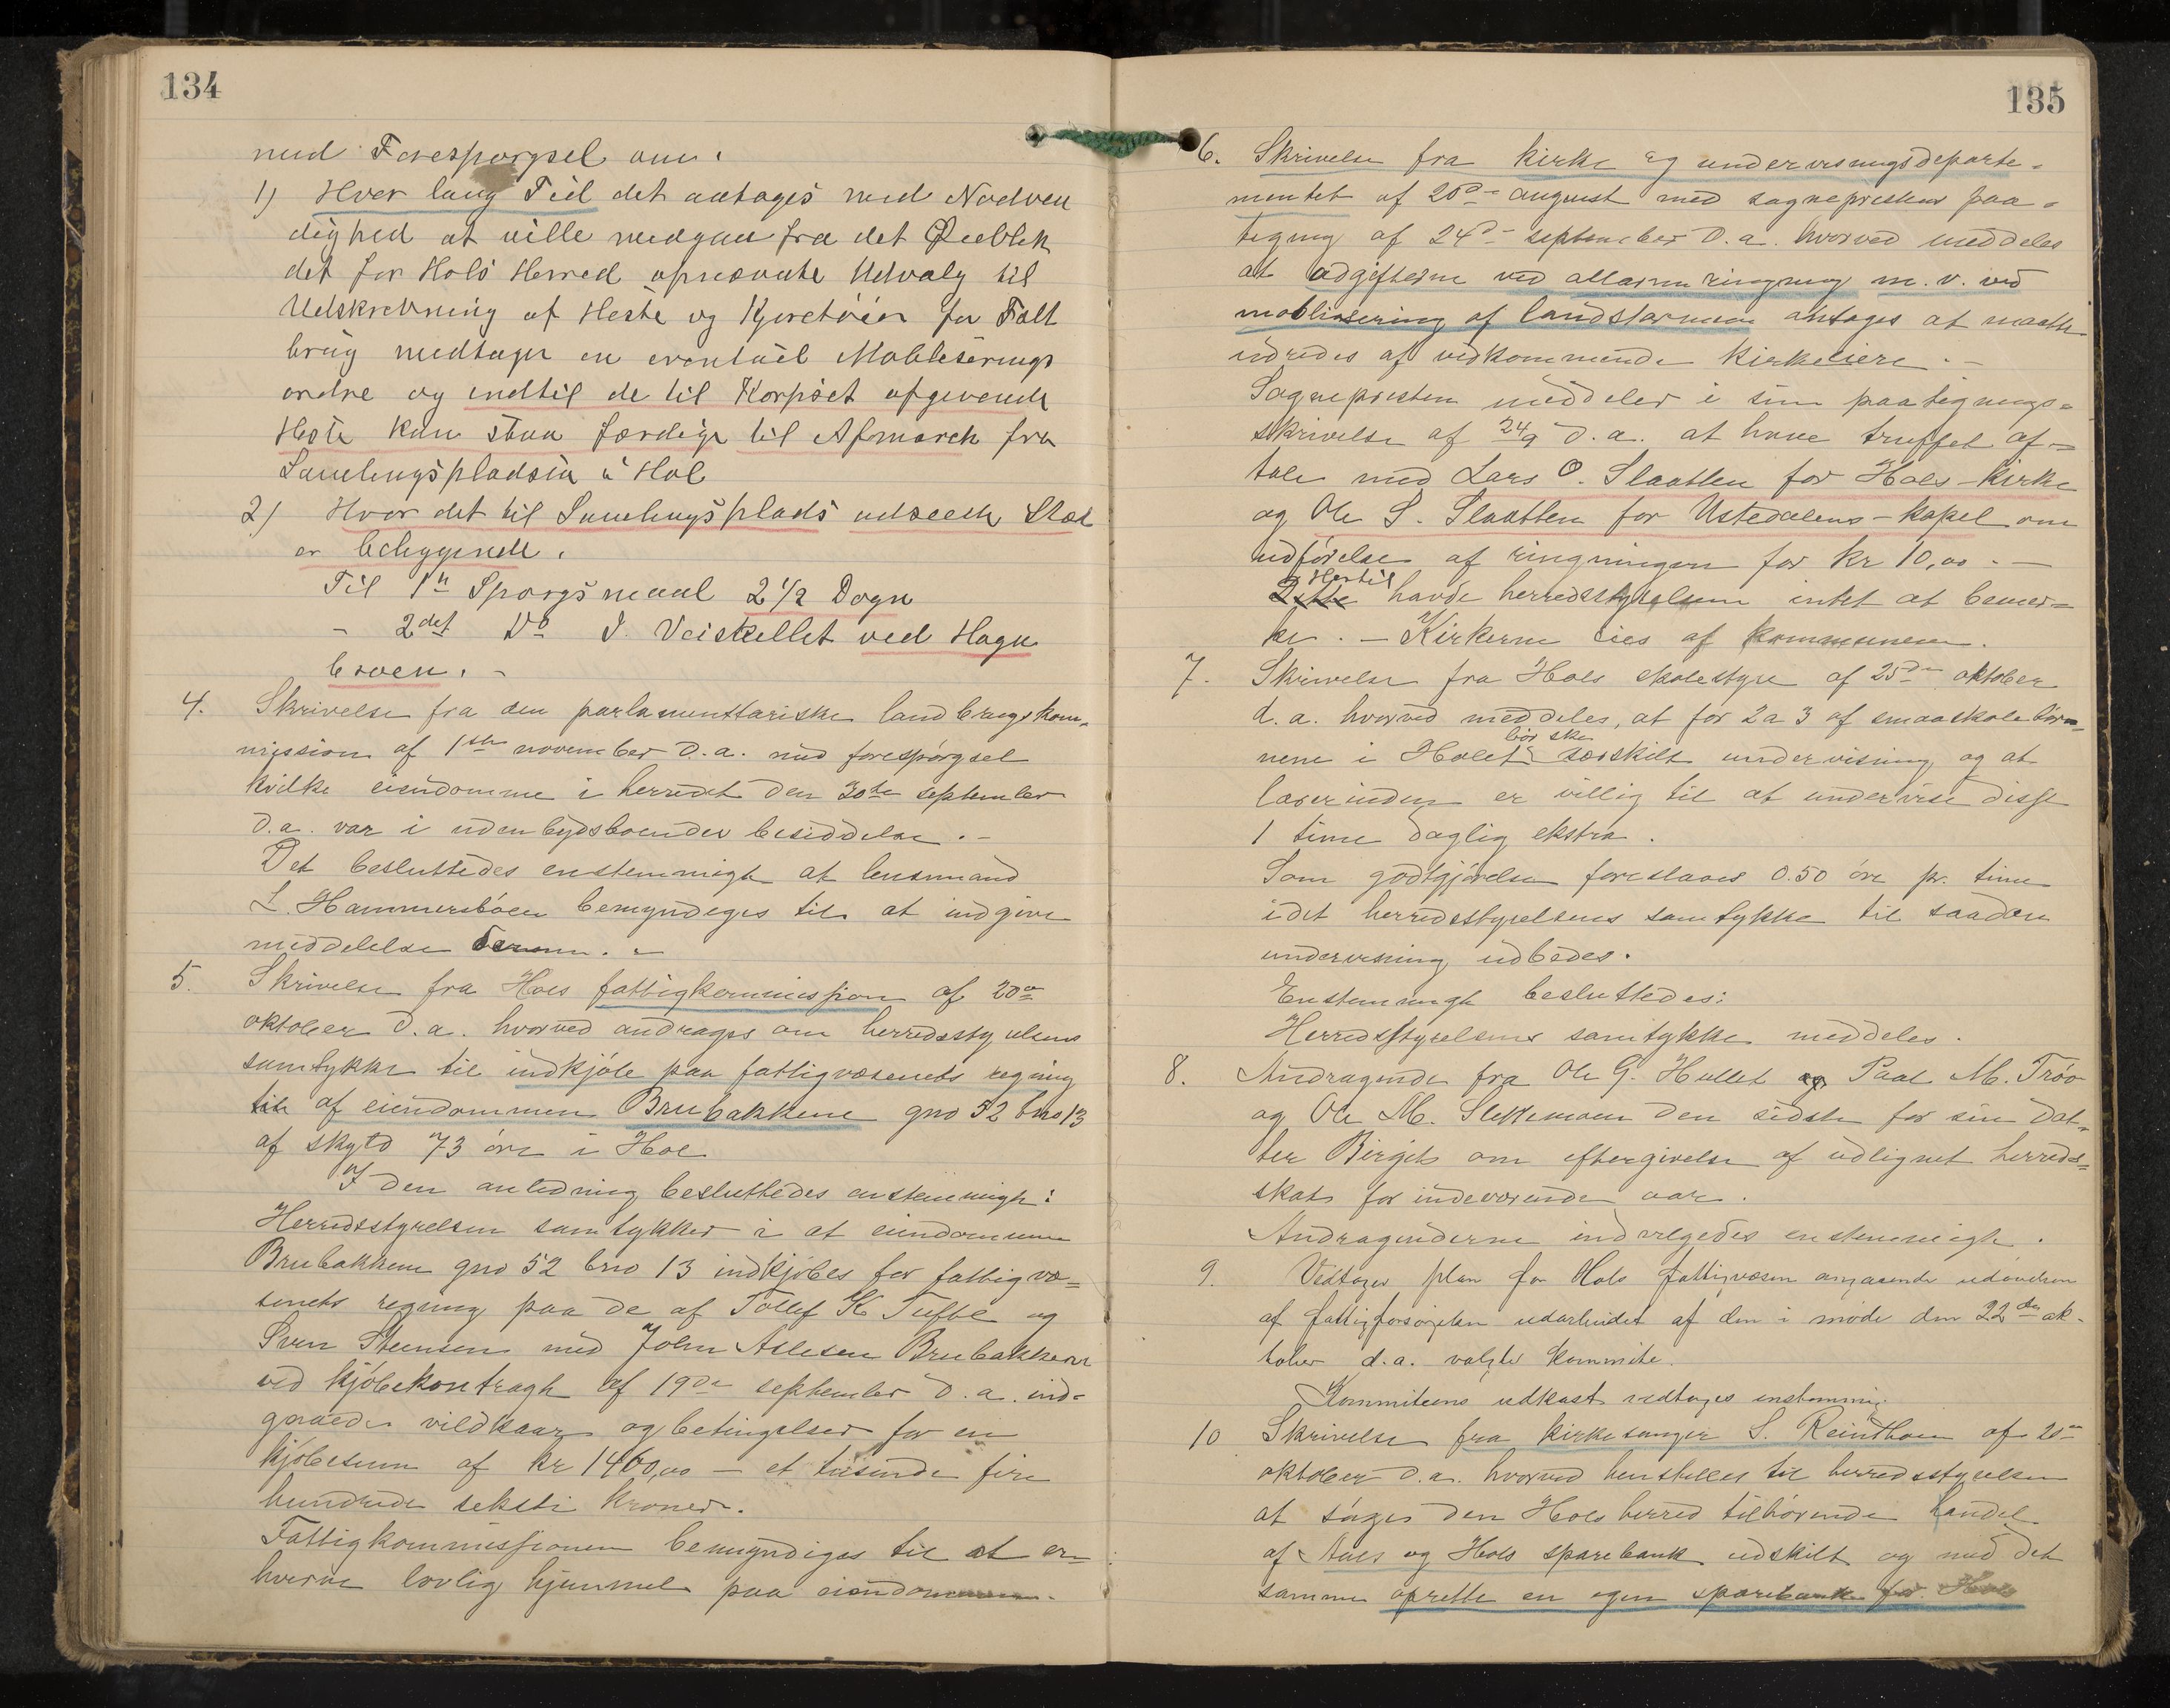 134
med Forespørgsel om.
1) Hvor lang Tid det antages med Nødven
dighed at ville medgaa fra det Øieblik
det for Hols Herred opnævnte Udvalg til
Udskrivning af Heste og Kjøretøier for Felt
brug modtager en eventuel Mobiliserings
ordre og indtil de til Korpset afgivende
Heste kan staa færdige til Afmarch fra
Samlingspladsen i Hol
2) Hvor det til Samlingsplads udseede Sted
er beliggende.
Til 1te Spørgsmaal 2 1/2 Døgn
- 2det Do I Veiskillet ved Haga
broen. -
4. Skrivelse fra den parlamenttariske landbrugskom-
mission af 1ste november d.a. med forespørgsel
hvilke eiendomme i herredet den 30te september
d.a. var i udenbygdsboendes besiddelse. -
Det besluttedes enstemmigt at lensmand
L. Hammersbøen bemyndeges til at indgive
meddelelse derom. -
5. Skrivelse fra Hols fattigkommission af 20de
oktober d.a. hvorved andrages om herredsstyrelsens
samtykke til indkjøb paa fattigvæsenets regning
af eiendommen Brubakkene gno 52 bno 13
af skyld 73 øre i Hol
I den anledning besluttedes enstemmigt:
Herredsstyrelsen samtykker i at eiendommen
Brubakkene gno 52 bno 13 indkjøbes for fattigvæ-
senets regning paa de af Tollef K. Tufte og
Sven Steensen med John Aslesen Brubakkene
ved kjøbekontragt af 19de september d.a. ind-
gaaede vildkaar og betingelser for en
kjøbesum af kr 1460,00 - et tusinde fire
hundrede seksti kroner.
Fattigkommissionen bemyndiges til at er-
hverve lovlig hjemmel paa eiendommen.
135
6. Skrivelse fra kirke og undervisningsdeparte-
mentet af 20de august med sognepresten paa-
tegning af 24de september d.a. hvorved meddeles
at udgifterne ved allarmringning m.v. ved
moblisering af landstormen antages at maatte
udredes af vedkommende kirkeeiere. -
Sognepresten meddeler i sin paategnings-
skrivelse af 24/9 d.a. at have truffet af-
tale med Lars O. Slaatten for Hols-kirke
og Ole S. Slaatten for Ustedalens-kapel om
udførelse af ringningen for kr 10,00. -
Hertil havde herredsstyrelsen intet at bemær-
ke. - Kirkerne eies af kommunen.
7. Skrivelse fra Hols skolestyre af 25de oktober
d.a. hvorved meddeles, at for 2 a 3 af smaaskolebør-
nene i Holet bør ske særskilt undervisning og at
lærerinden er villig til at undervise disse
1 time daglig ekstra.
Som godtgjørelse foreslaaes 0.50 øre pr. time
idet herredsstyrelsens samtykke til saadan
undervisning udbedes.
Enstemmigt besluttedes:
Herredsstyrelsens samtykke meddeles.
8. Andragende fra Ole G. Hallet og Paal M. Trøo
og Ole M. Slettemoen den sidste for sin dat-
ter Birgit om eftergivelse af udlignet herreds-
skat for indeværende aar.
Andragenderne indvilgedes enstemmigt.
9. Vedtages plan for Hols fattigvæsen angaaende udøvelsen
af fattigforsørgelsen udarbeidet af den i møde den 22de ok-
tober d.a. valgte kommite.
Kommiteens udkast vedtages enstemmig.
10 Skrivelse fra kirkesanger S. Reinton af 20de
oktober d.a. hvorved henstilles til herredsstyrelsen
at søges den Hols herred tilhørende handel
af Aals og Hols sparebank udskilt og med det
samme oprette en egen sparebank for Hol